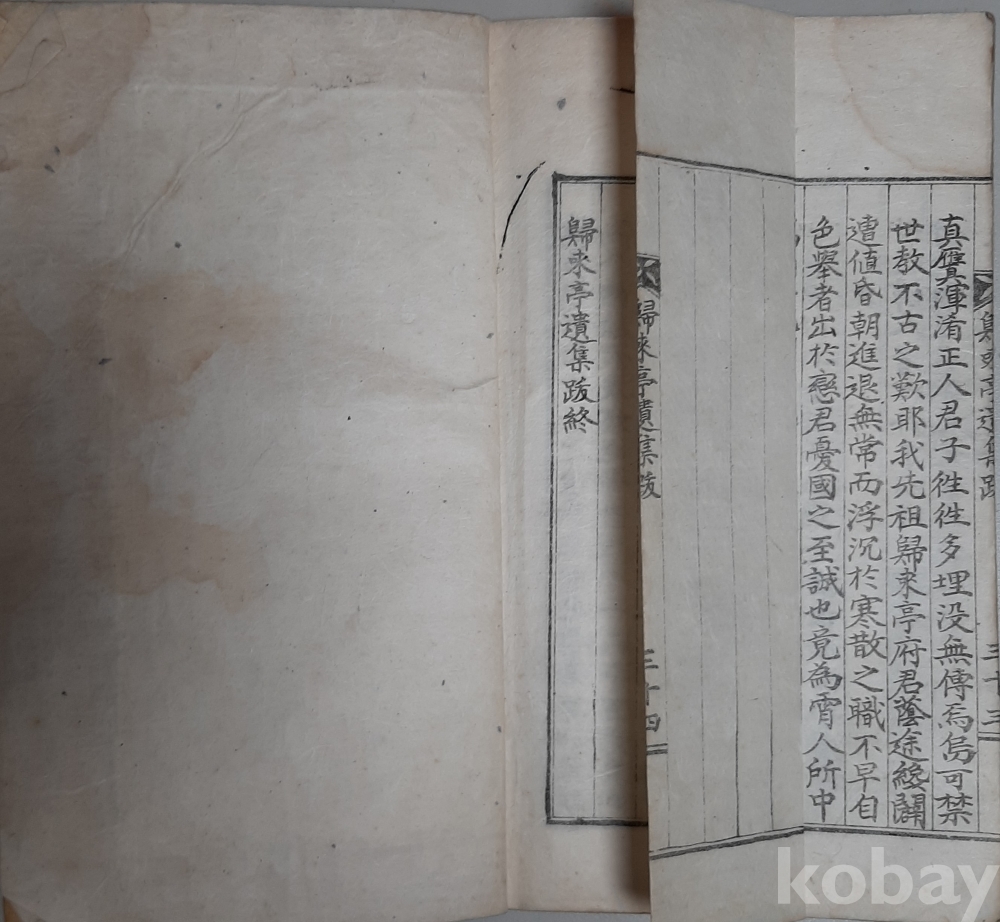 真贋渾淆正人君子徃徃多埋没無傳焉烏可禁
世教不古之歎耶我先祖歸来亭府君蔭途
遭值昏朝進退無常而浮沉於寒散之職不早自
色舉者出於戀君憂國之至誠也竟為宵人所中
歸来亭遺集跋
三十三
歸来亭遺集跋
三十四
歸来亭遺集跋終
kobay